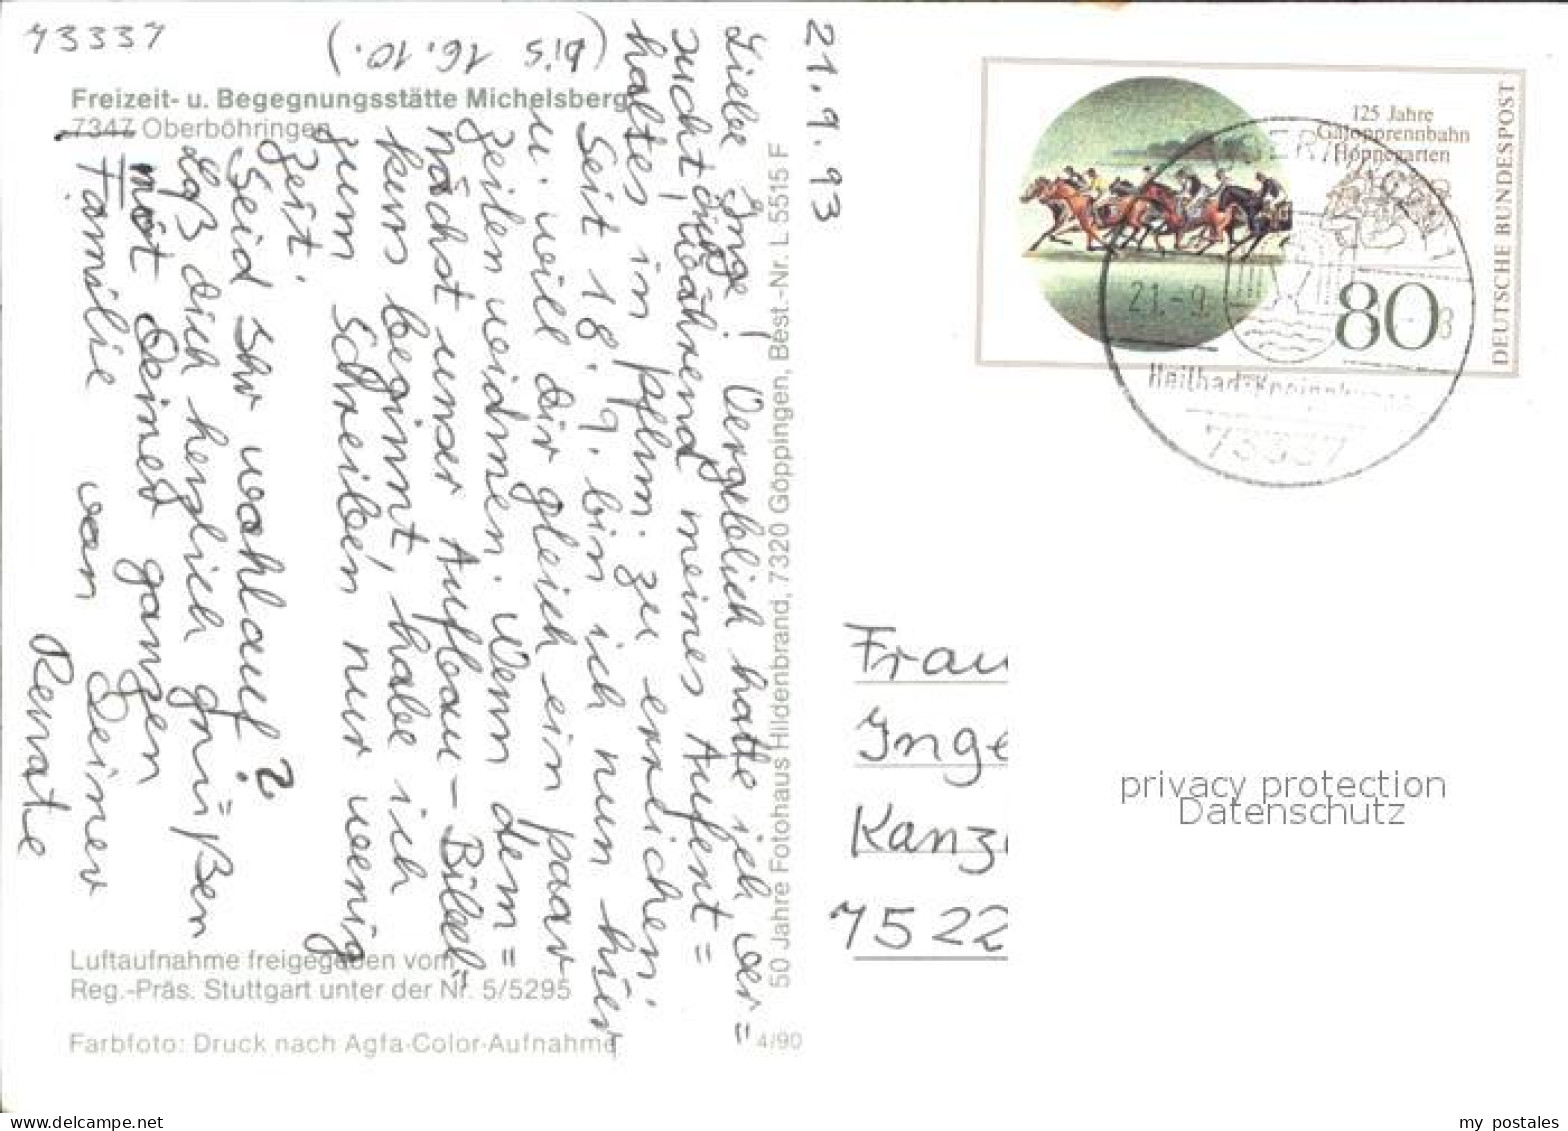 73337
Freizeit- u. Begegnungsstätte Michelsberg
7347 Oberböhringen
21.9.93
Liebe Inge! Vergeblich hatte ich ver=
sucht, dich während meines Aufent=
haltes in Pflhm. zu erreichen.
Seit 18. 9. bin ich nun hier
(bis 16. 10.)
u. will dir gleich ein paar
Zeilen widmen. Wenn dem=
nächst unser Aufbau-Bibel=
kurs beginnt, habe ich
zum Schreiben nur wenig
Zeit.
Seid Ihr wohlauf?
Laß dich herzlich grüßen
mit deiner ganzen
Familie von Deiner
Renate
Luftaufnahme freigegeben vom
Reg.-Präs. Stuttgart unter der Nr. 5/5295
Farbfoto: Druck nach Agfa-Color-Aufnahme
50 Jahre Fotohaus Hildenbrand, 7320 Göppingen, Best.-Nr. L 5515 F
4/90
125 Jahre
Galopprennbahn
Hoppegarten
80
DEUTSCHE BUNDESPOST
21.-9.
73337
Frau
Inge
Kanz
7522
privacy protection
Datenschutz
my postales